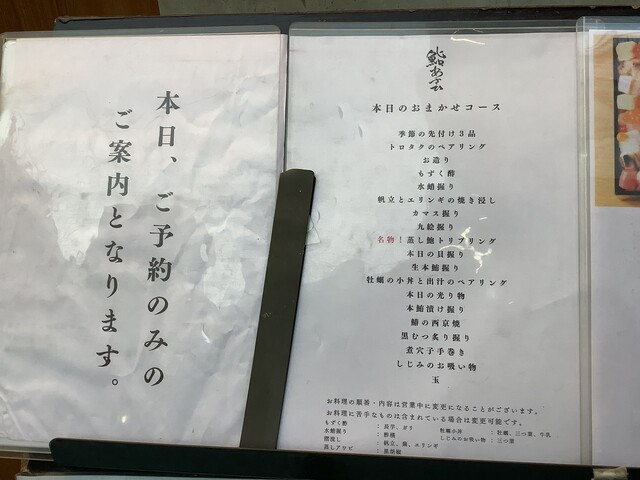 本日、ご予約のみの
ご案内となります。
鮨あらい
本日のおまかせコース
季節の先付け3品
トロタクのペアリング
お造り
もずく酢
水蛸握り
帆立とエリンギの焼き浸し
カマス握り
九絵握り
名物!蒸し鮑トリプリング
本日の貝握り
生本鮪握り
牡蠣の小丼と出汁のペアリング
本日の光り物
本鮪漬け握り
鰆の西京焼
黒むつ炙り握り
煮穴子手巻き
しじみのお吸い物
玉
お料理の順番・内容は営業中に変更になることがございます。
お料理に苦手なものは含まれている場合は変更可能です。
もずく酢 : 長芋、ガリ
水蛸握り : 酢橘
牡蠣小丼 : 牡蠣、三つ葉、牛乳
しじみのお吸い物 : 三つ葉
: 帆立、葱、エリンギ
蒸しアワビ